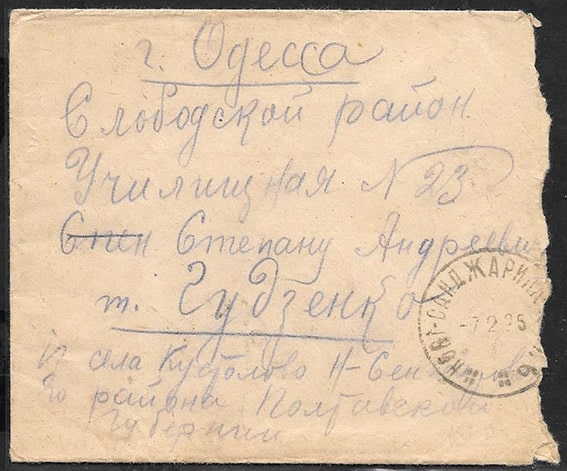 г. Одесса
Слободской район
Училищная N 23
Степану Андреевич
т. Гудзенко
И села Кустолово Н-Сенжаров
го района Полтавской
Губернии
НОВІ-САНДЖАРИ
-7.2.25